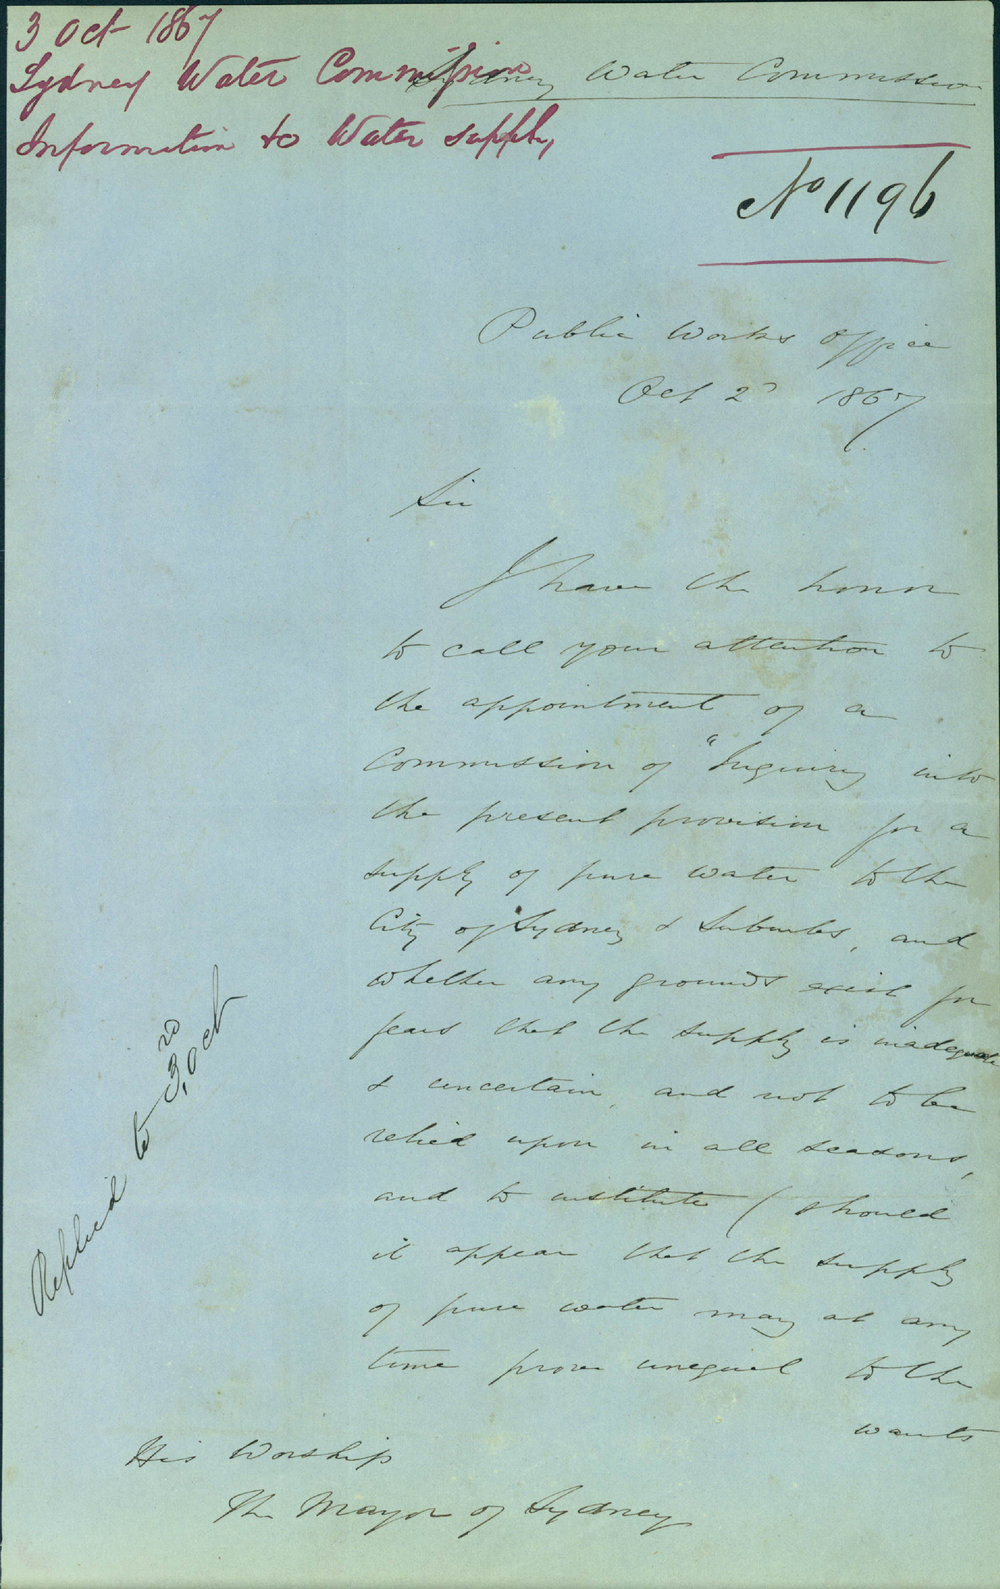 3 Oct 1867
Sydney Water Commission
Information to Water supply
Sydney Water Commission
No 1196
Public Works Office
Oct 2d 1867
Sir
I have the honor
to call your attention to
the appointment of a
Commission of "Inquiry into
the present provision for a
supply of pure water to the
City of Sydney & Suburbs, and
whether any grounds exist for
fears that the supply is inadequate
& uncertain, and not to be
relied upon in all seasons,
and to institute ( should
it appear that the supply
of pure water may at any
time prove unequal to the
wants
Replied to 3rd Oct
His Worship
The Mayor of Sydney